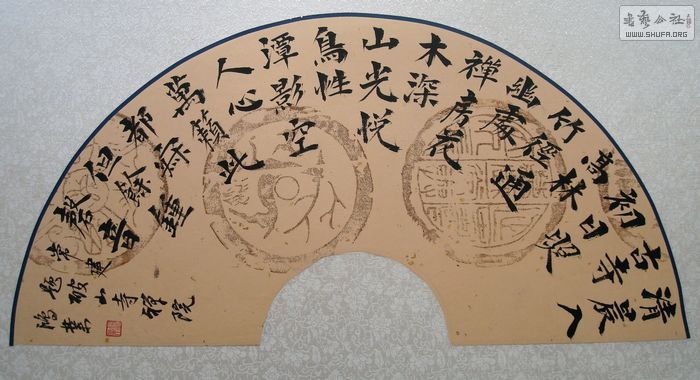 清晨入
古寺
初日照
高林
竹徑通
幽處
禪房花
木深
山光悦
鳥性
潭影空
人心
萬籟此
都
但餘鍾
磬音
常建
題破山寺禪院
书艺公社
WWW.SHUFA.ORG